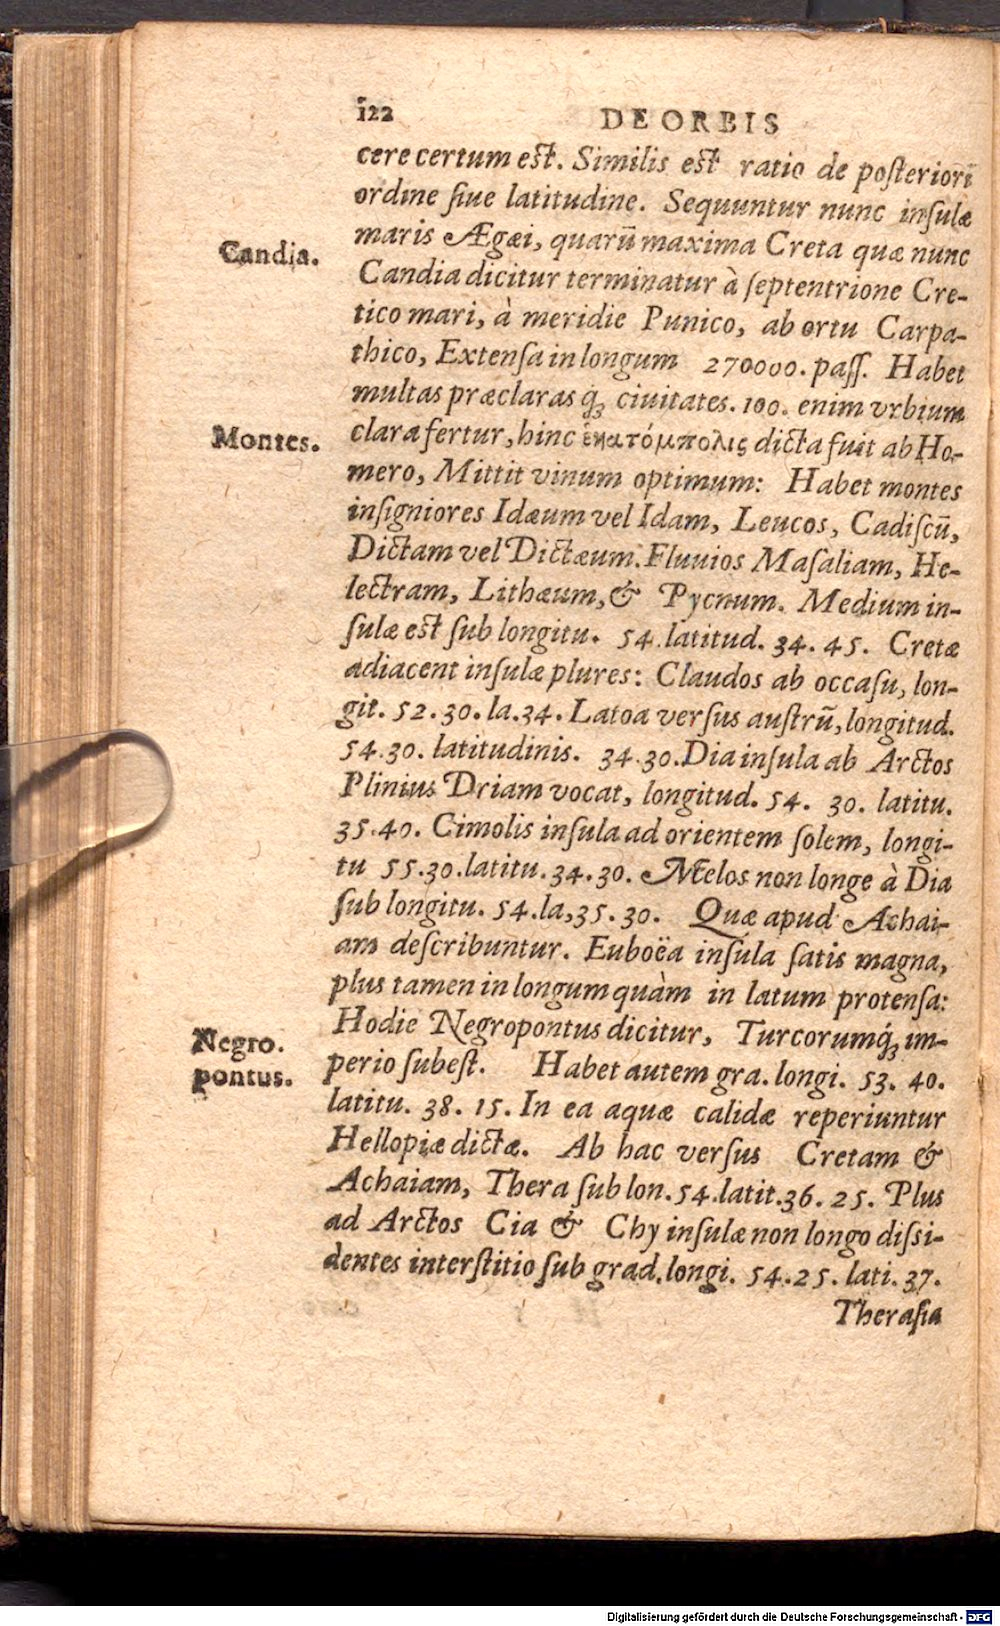 122 DE ORBIS
cere certum est. Similis est ratio de posteriori
ordine siue latitudine. Sequuntur nunc insulæ
maris Ægæi, quarū maxima Creta quæ nunc
Candia.
Candia dicitur terminatur à septentrione Cre-
tico mari, à meridie Punico, ab ortu Carpa-
thico, Extensa in longum 270000. pass. Habet
multas præclaras q́ꝫ ciuitates. 100. enim vrbium
Montes.
clara fertur, hinc ἑκατόμπολις dicta fuit ab Ho-
mero, Mittit vinum optimum: Habet montes
insigniores Idæum vel Idam, Leucos, Cadiscū,
Dictam vel Dictæum. Fluuios Masaliam, He-
lectram, Lithæum, & Pycnum. Medium in-
sulæ est sub longitu. 54. latitud. 34. 45. Cretæ
adiacent insulæ plures: Claudos ab occasu, lon-
git. 52. 30. la. 34. Latoa versus austrū, longitud.
54. 30. latitudinis. 34. 30. Dia insula ab Arctos
Plinius Driam vocat, longitud. 54. 30. latitu.
35. 40. Cimolis insula ad orientem solem, longi-
tu 55. 30. latitu. 34. 30. Melos non longe à Dia
sub longitu. 54. la, 35. 30. Quæ apud Achai-
am describuntur. Euboëa insula satis magna,
plus tamen in longum quàm in latum protensa:
Negro.
pontus.
Hodie Negropontus dicitur, Turcorumq́ꝫ im-
perio subest. Habet autem gra. longi. 53. 40.
latitu. 38. 15. In ea aquæ calidæ reperiuntur
Hellopiæ dictæ. Ab hac versus Cretam &
Achaiam, Thera sub lon. 54. latit. 36. 25. Plus
ad Arctos Cia & Chy insulæ non longo dissi-
dentes interstitio sub grad. longi. 54. 25. lati. 37.
Therasia
Digitalisierung gefördert durch die Deutsche Forschungsgemeinschaft - DFG